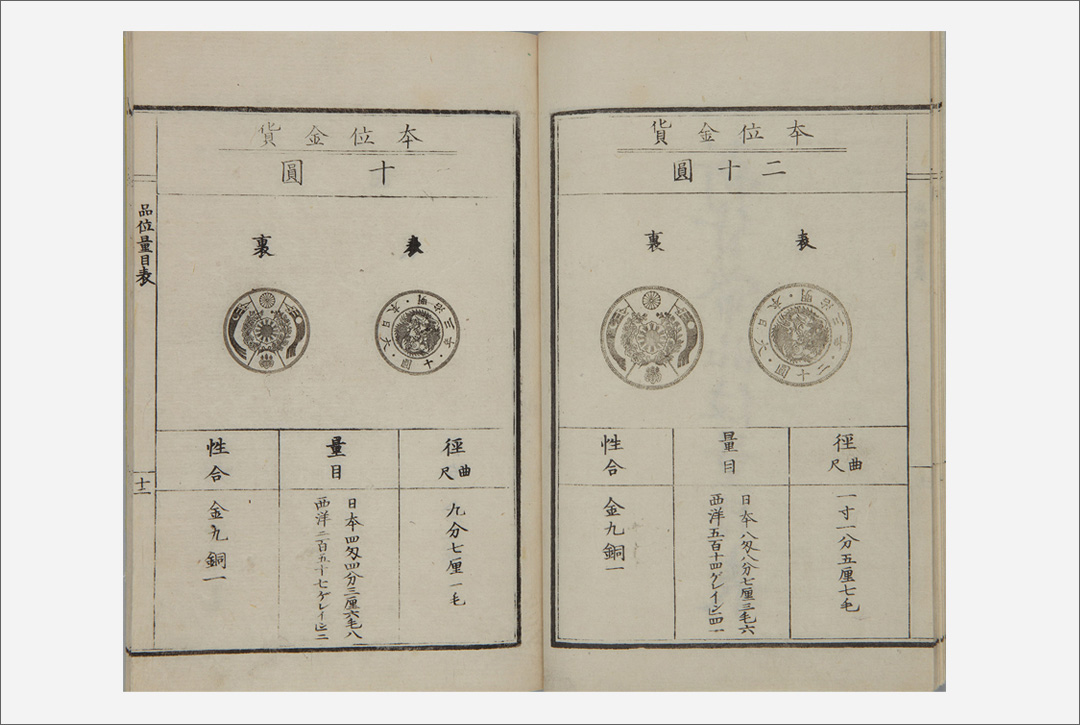 本位金貨
二十圓
表
裏
明治三年・二十圓・大日本・
徑
曲尺
一寸一分五厘七毛
量目
日本八匁八分七厘三毛六
西洋五百十四ゲレイン四一
性合
金九銅一
本位金貨
十圓
表
裏
明治三年・十圓・大日本・
徑
曲尺
九分七厘一毛
量目
日本四匁四分三厘六毛八
西洋二百五十七ゲレイン二
性合
金九銅一
品位量目表
十二